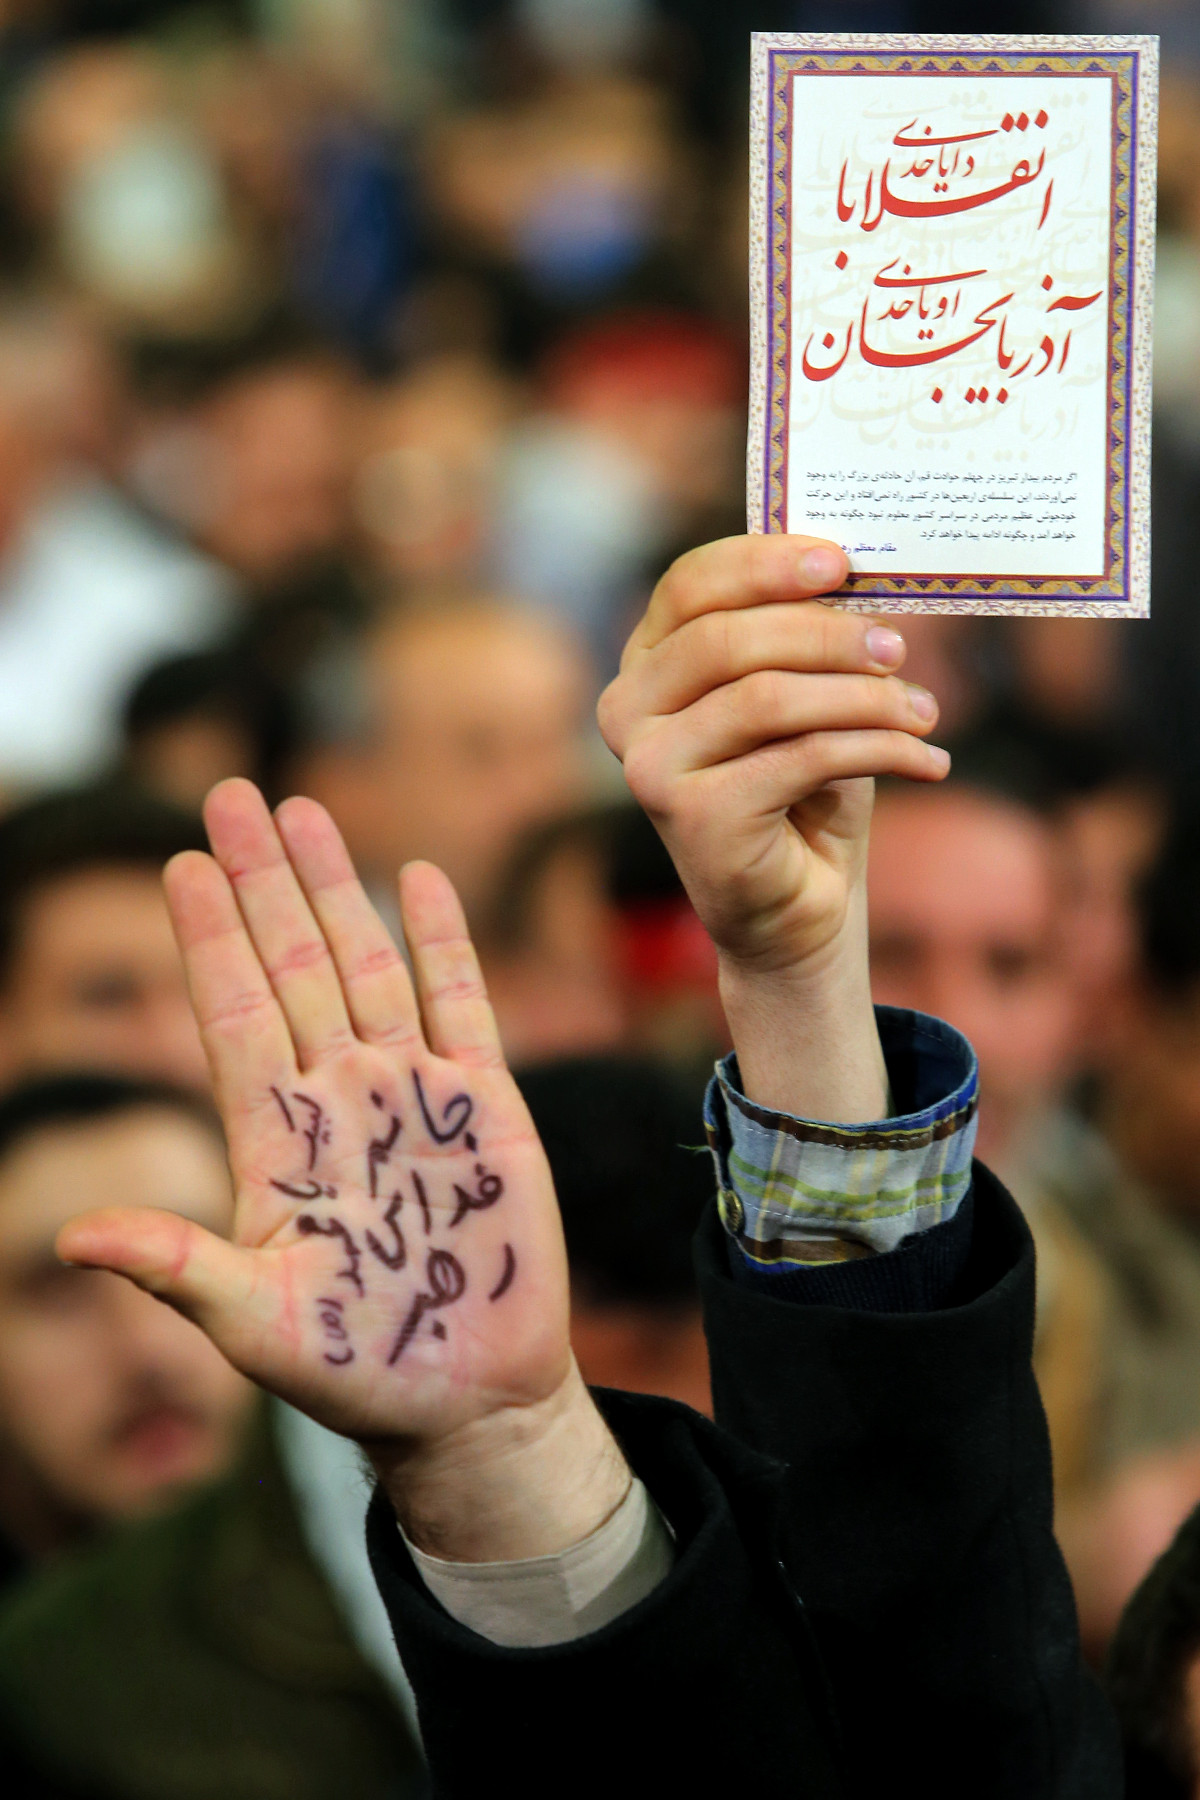 انقلابا دایاخدی
آذربایجان اویاخدی
اگر مردم بیدار تبریز در چهلم حوادث قم، آن حادثه‌ی بزرگ را به وجود
نمی‌آوردند، این سلسله‌ی اربعین‌ها در کشور راه نمی‌افتاد و این حرکت
خودجوش عظیم مردمی در سراسر کشور معلوم نبود چگونه به وجود
خواهد آمد و چگونه ادامه پیدا خواهد کرد.
مقام معظم
جانم
فدای
رهبر
لبیک یا محمد